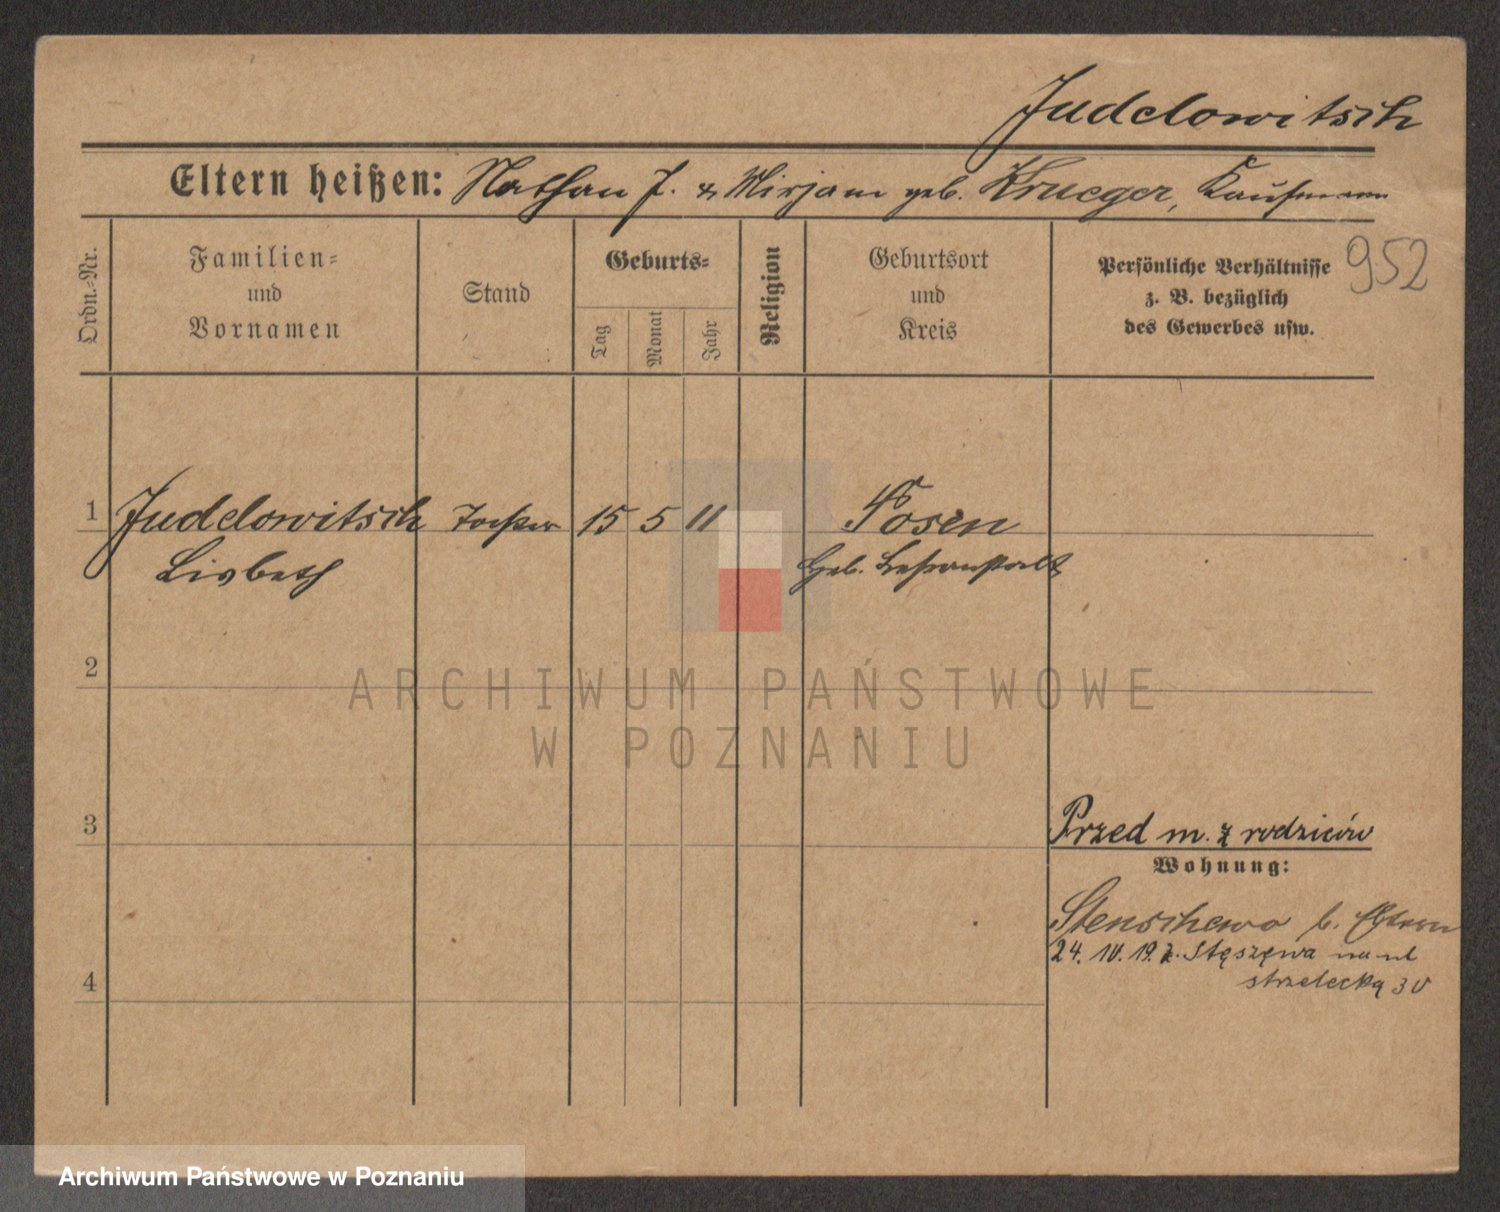 Judelowitsch
Eltern heißen: Nathan J. & Mirjam geb. Krueger, Kaufmann
Ordn.-Nr.
Familien-
und
Vornamen
Stand
Geburts-
Tag
Monat
Jahr
Religion
Geburtsort
und
Kreis
Persönliche Verhältnisse
z. B. bezüglich
des Gewerbes usw.
952
1 Judelowitsch Tochter 15 5 11 Posen
Lisbeth Geb.
2
ARCHIWUM PAŃSTWOWE
W POZNANIU
3
Przed m. z rodziców
Wohnung:
Stenschewo b. Eltern
24. 10. 19. z. Stęszewa na ul
strzelecką 30
4
Archiwum Państwowe w Poznaniu